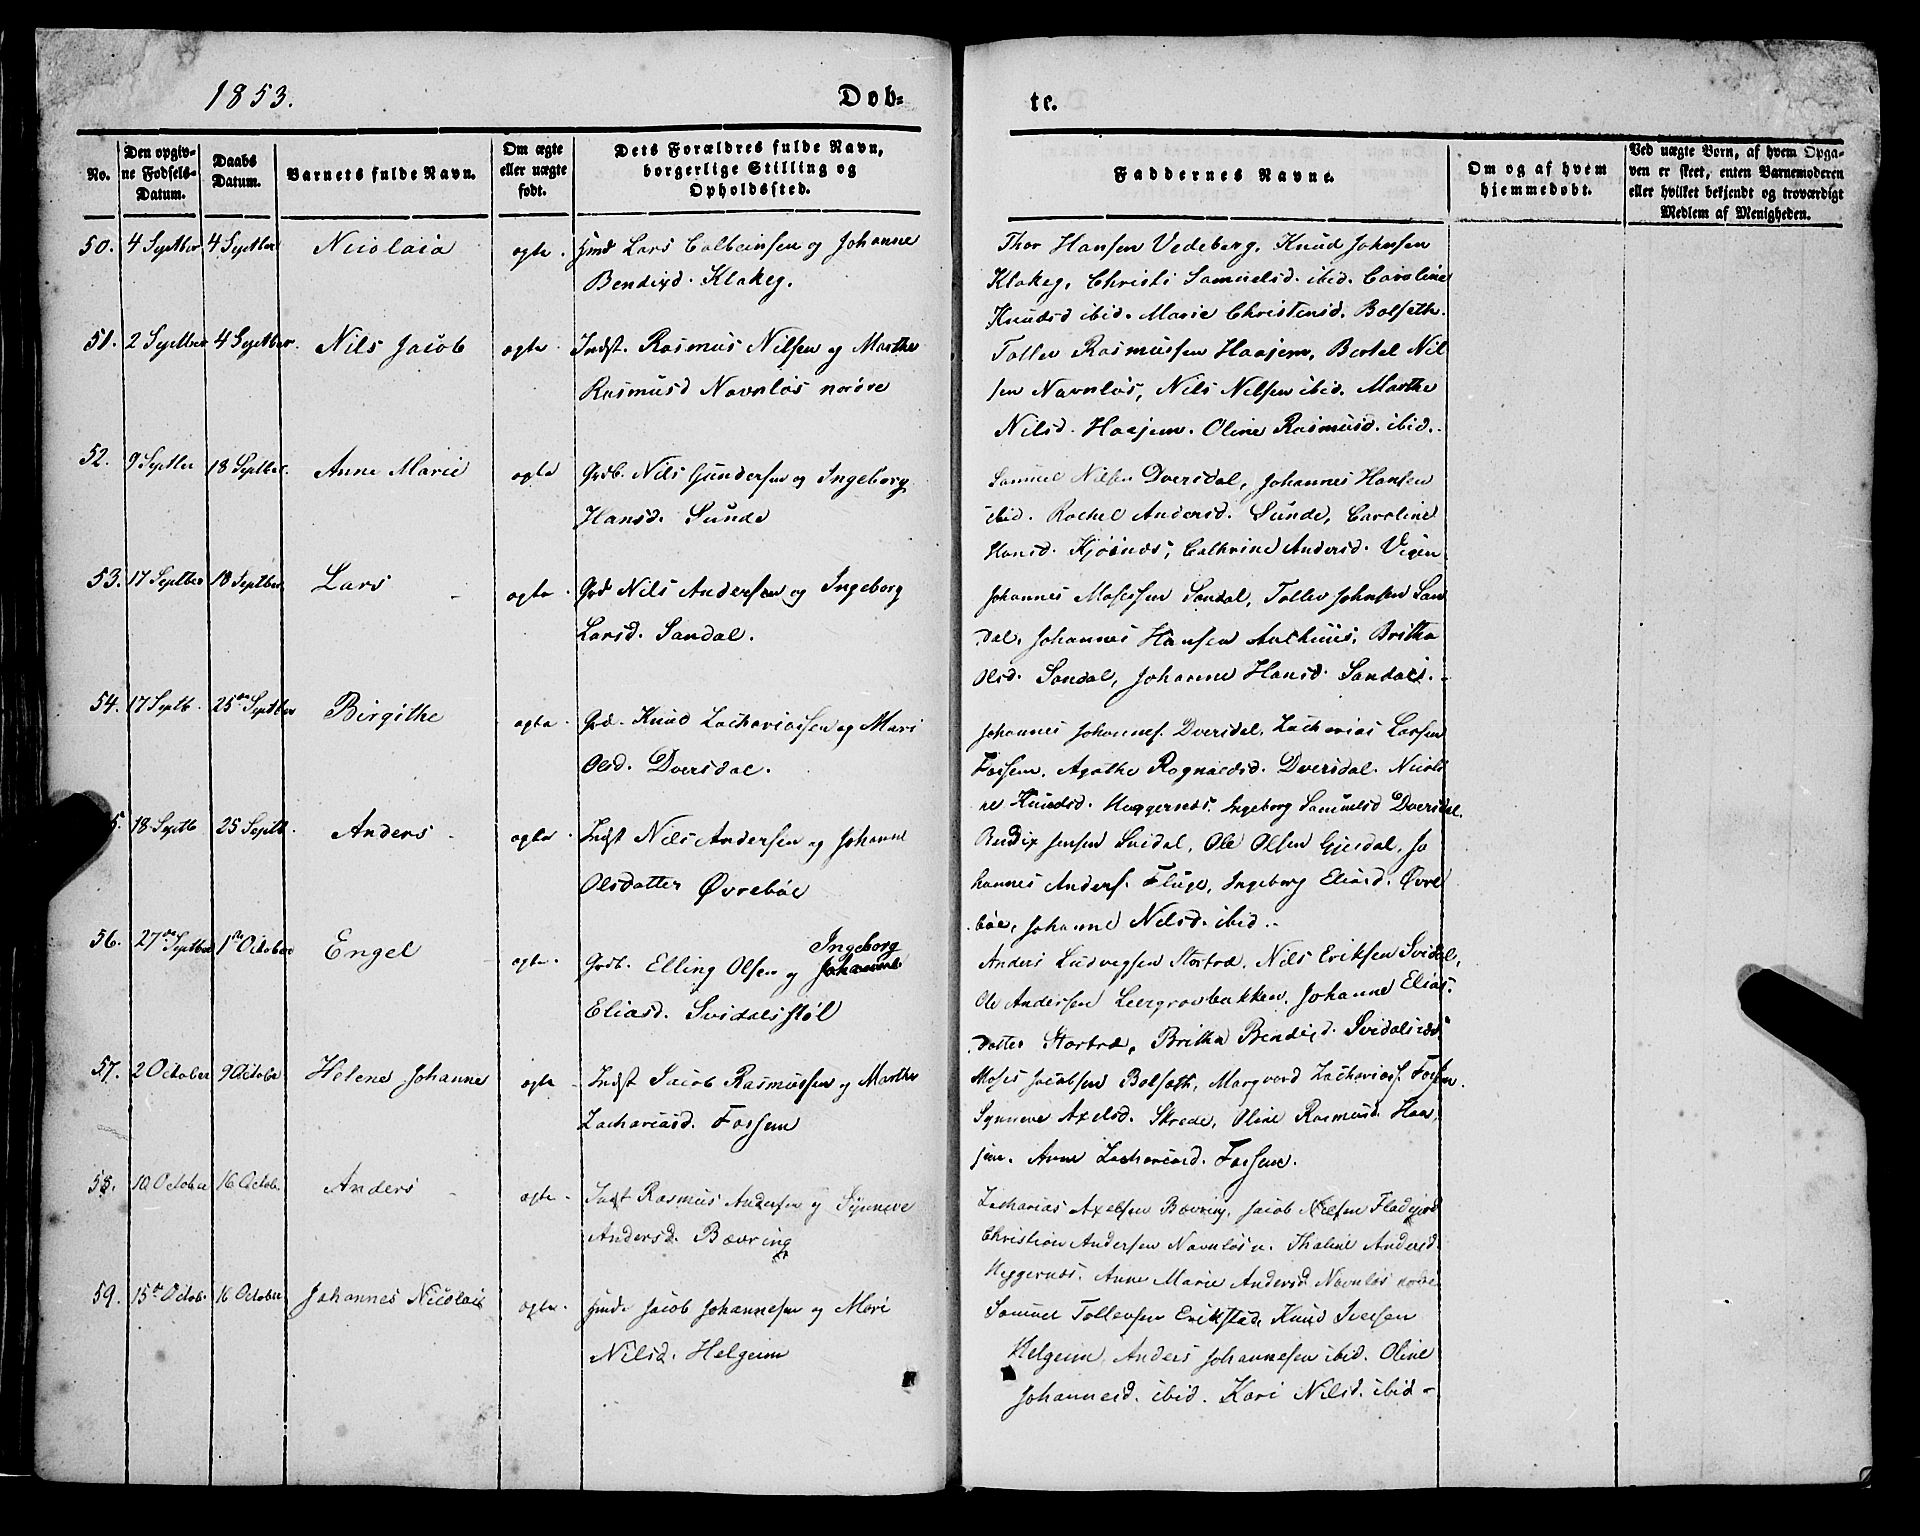 1853.
Døb-
te.
No.
Den opgiv-
ne Fødsels-
Datum.
Daabs
Datum.
Barnets fulde Navn.
Om ægte
eller uægte
født.
Dets Forældres fulde Navn,
borgerlige Stilling og
Opholdssted.
Faddernes Navne.
Om og af hvem
hjemmedøbt.
Ved uægte Børn, af hvem Opga-
ven er skeet, enten Barnemoderen
eller hvilket bekjendt og troværdigt
Medlem af Menigheden.
50. 4 Septber 4 Septber Nicolaia ægte. Hmd Lars Colbeinsen og Johanne
Bendixd. Klakeg.
Thor Hansen Vedeberg, Knud Johnsen
Klakeg, Christi Samuelsd. ibid. Caroline
Knudsd ibid. Marie Christensd. Bolseth.
51. 2 Septber 4 Septber. Nils Jacob ægte. Indst. Rasmus Nilsen og Marthe
Rasmusd Navnløs nordre
Tollev Rasmussen Haajem, Bertel Nil
sen Navnløs, Nils Nilsen ibid. Marthe
Nilsd. Haajem. Oline Rasmusd. ibid.
52. 9 Septber 18 Septber. Anne Marie ægte Grdb. Nils Gundersen og Ingeborg
Hansd. Sunde
Samuel Nilsen Dversdal, Johannes Hansen
ibid. Rachel Andersd. Sunde, Caroline
Hansd. Kjøsnæs, Cathrine Andersd. Vigen
53. 17 Septber 18 Septber. Lars ægte. Grd Nils Andersen og Ingeborg
Larsd. Sandal.
Johannes Mosessen Sandal, Tollev Johnsen San
dal, Johannes Hansen Aarhuus, Britha
Olsd. Sandal, Johanne Hansd. Sandal.
54. 17 Septb. 25de Septber Birgithe ægte. Grd. Knud Zachariassen og Mari
Olsd. Dversdal.
Johannes Johannes. Dversdal, Zacharias Larsen
Fossem, Agathe Ragnaldsd. Dversdal. Nicoli
ne Knudsd. Heggernæs. Ingeborg Samuelsd Dversdal.
5. 18 Septb 25 Septb. Anders ægte. Indst Nils Andersen og Johanne
Olsdatter Øvrebøe
Bendix Jensen Svidal, Ole Olsen Gjesdal, Jo
hannes Anders. Fluge, Ingeborg Eliasd. Øvre
bøe, Johanne Nilsd. ibid.
56. 27de Septber 1ste October Engel ægte. Grdb. Elling Olsen og Johanne Ingeborg
Eliasd. Svidalsstøl
Anders Ludvigsen Stortræ, Nils Eriksen Svidal,
Ole Andersen Leergrovbakken, Johanne Elias
datter Stortræ, Britha Bendixd. Svidalsnæs
57. 2 October 9 October Helene Johanne ægte Indst Jacob Rasmussen og Marthe
Zachariasd. Fossem
Moses Jacobsen Bolseth, Margvard Zacharias. Fossem.
Synneve Axelsd. Skrede, Oline Rasmusd. Haa
jem. Anne Zachariasd. Fossem.
58. 10 October 16 Octob. Anders ægte Indst Rasmus Andersen og Synneve
Andersd. Bævring
Zacharias Axelsen Bævring, Jacob Nilsen Fladjord
Christian Andersen Navnløs n. Thaline Andersd.
Heggernæs. Anne Marie Andersd Navnløs nordre
59. 15de Octob. 16 October Johannes Nicolai ægte. Hmd. Jacob Johannesen og Mari
Nilsd. Helgeim
Samuel Tollevsen Erikstad, Knud Iversen
Helgeim, Anders Johannesen ibid. Oline
Johannesd. ibid. Kari Nilsd. ibid